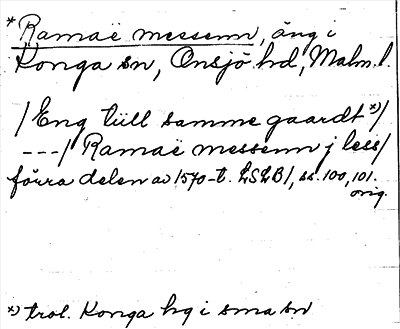 * Ramaë messenn, äng i
Konga sn, Onsjö hd, Malm. l.
/ Eng till samme gaardt *) /
---/ Ramaë messenn j less/
förra delen av 1570-t. LSLB1, ss. 100, 101.
orig.
*) trol. Konga hg i sma sn